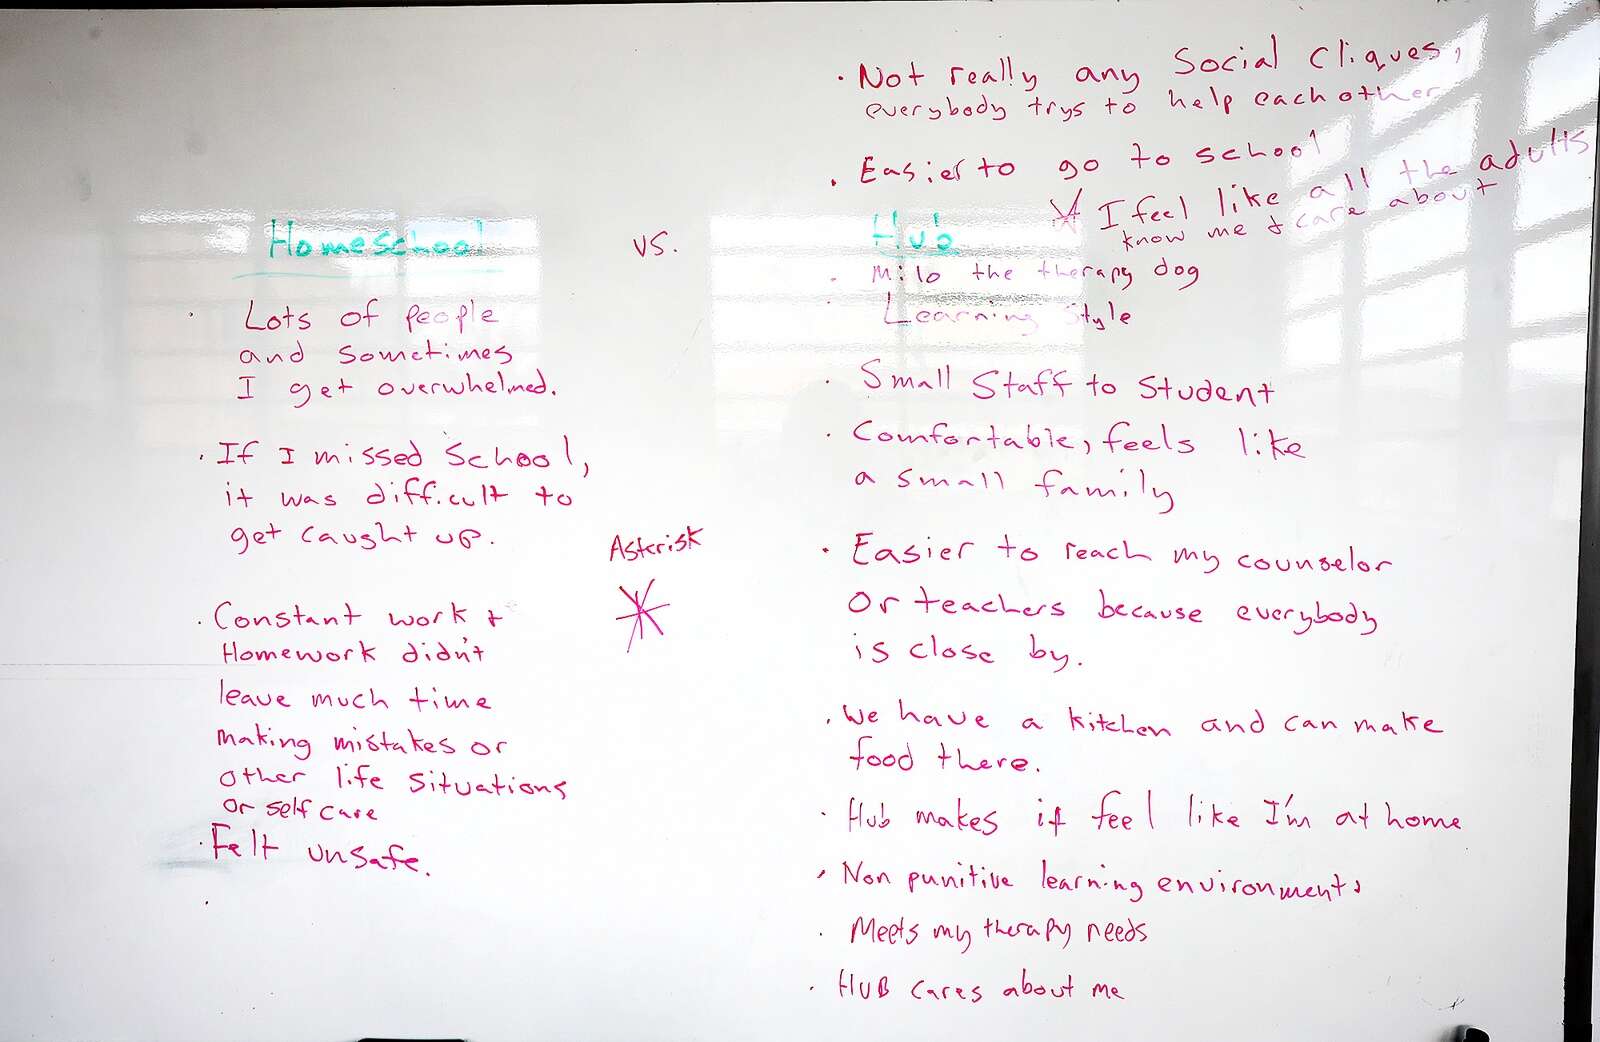 Homeschool
· Lots of people
and sometimes
I get overwhelmed.
· If I missed School,
it was difficult to
get caught up.
· Constant work +
Homework didn't
leave much time
making mistakes or
other life situations
or self care
· Felt unsafe.
·
vs.
Asterisk
*
· Not really any Social Cliques,
everybody trys to help each other
· Easier to go to school
* I feel like all the adults
know me & care about
Hub
· Milo the therapy dog
· Learning Style
· Small Staff to Student
· Comfortable, feels like
a small family
· Easier to reach my counselor
Or teachers because everybody
is close by.
· We have a kitchen and can make
food there.
· Hub makes it feel like I'm at home
· Non punitive learning environments
· Meets my therapy needs
· HUB cares about me